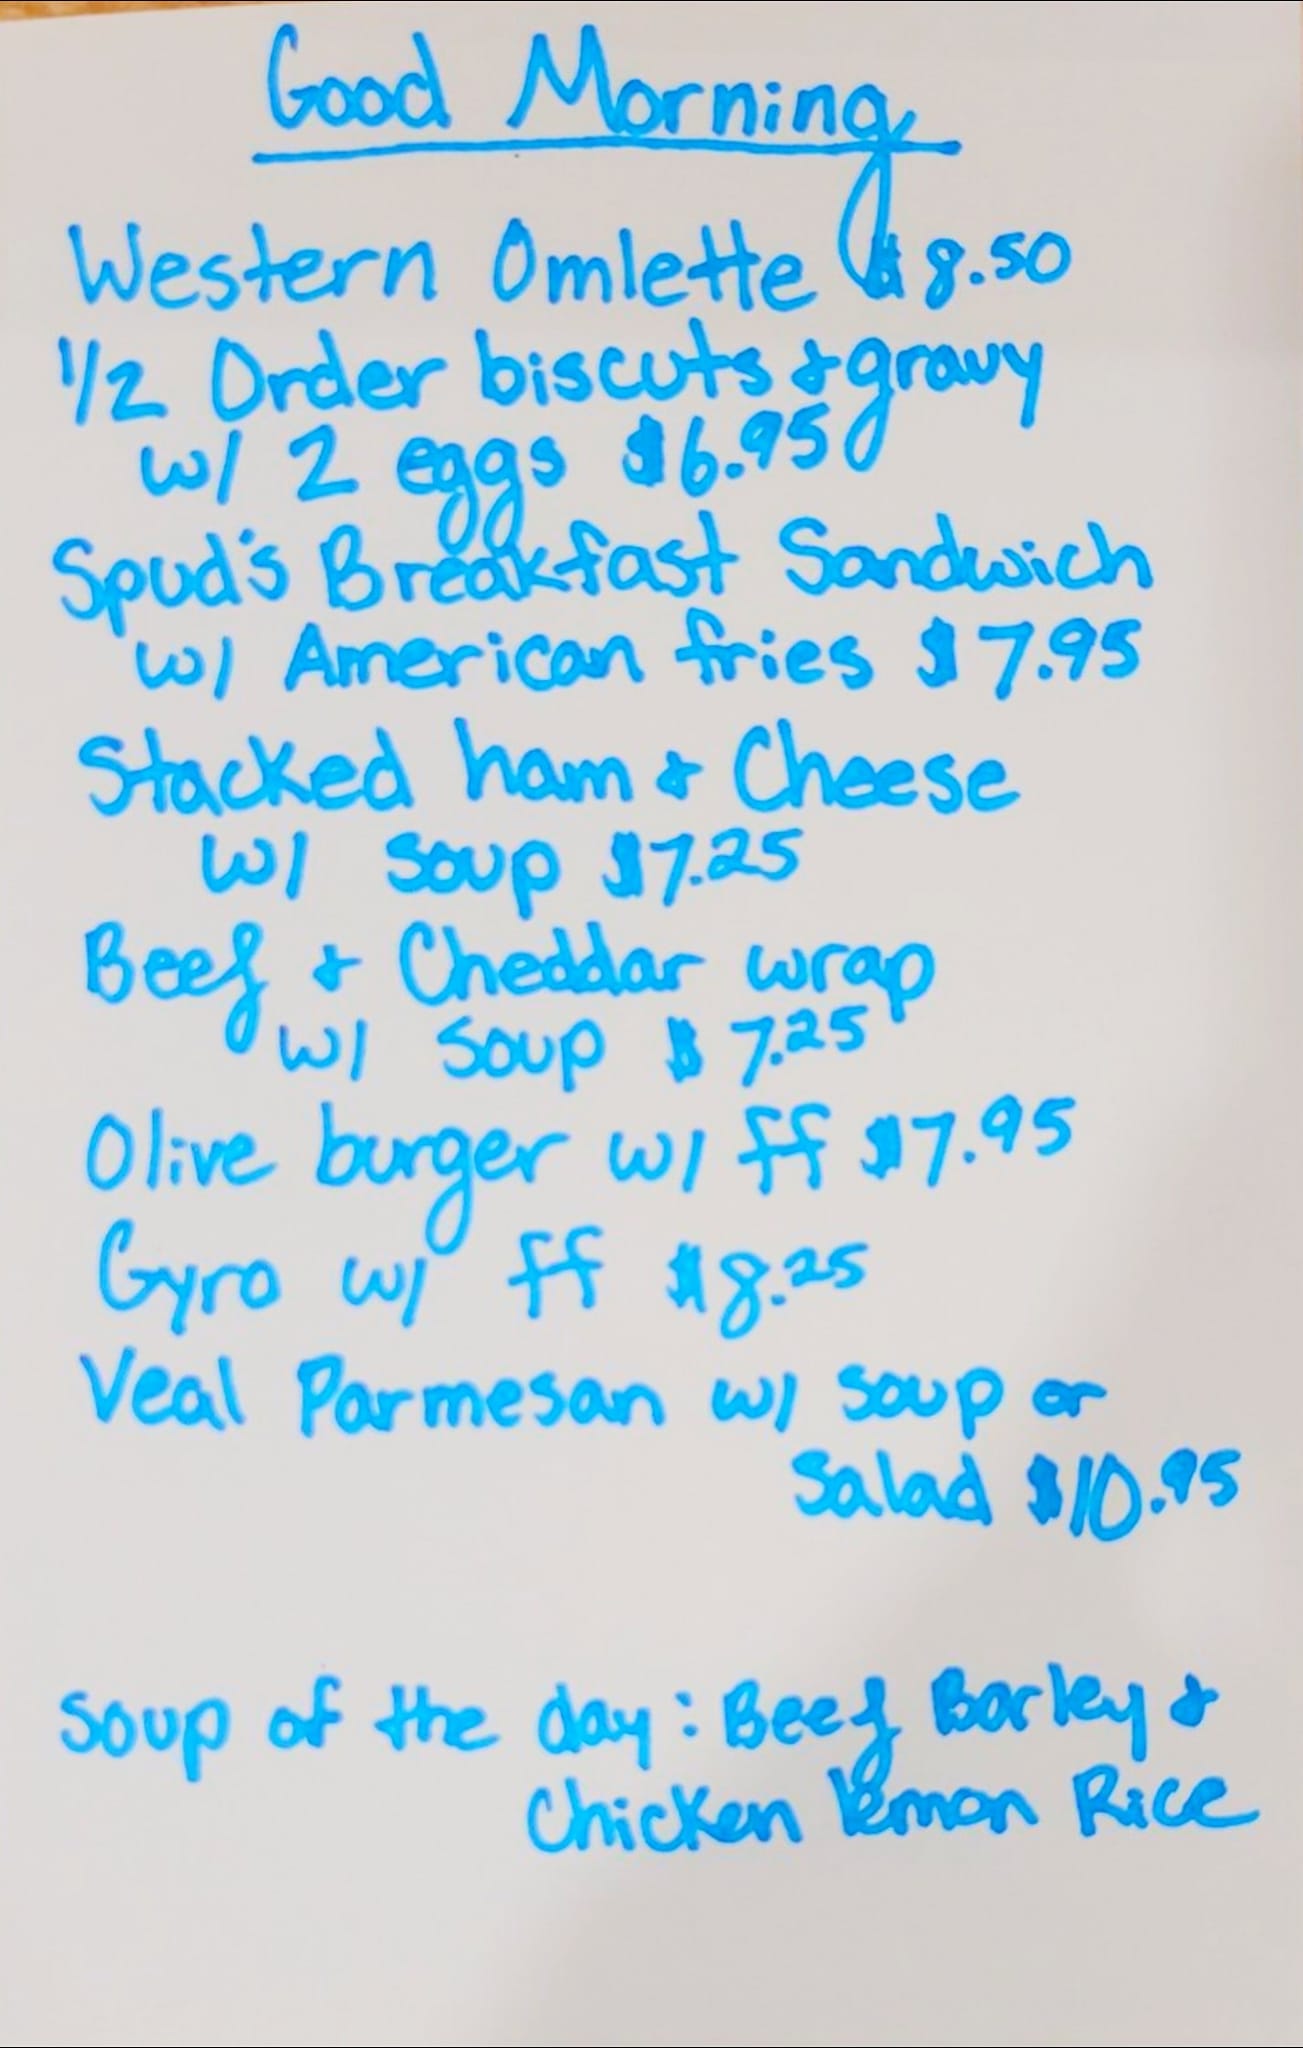 Good Morning
Western Omlette $8.50
1/2 Order biscuts & gravy
w/ 2 eggs $6.95
Spud's Breakfast Sandwich
w/ American fries $7.95
Stacked ham & Cheese
w/ soup $7.25
Beef & Cheddar wrap
w/ soup $7.25
Olive burger w/ ff $7.95
Gyro w/ ff $8.25
Veal Parmesan w/ soup or
salad $10.95
Soup of the day: Beef Barley &
Chicken lemon Rice